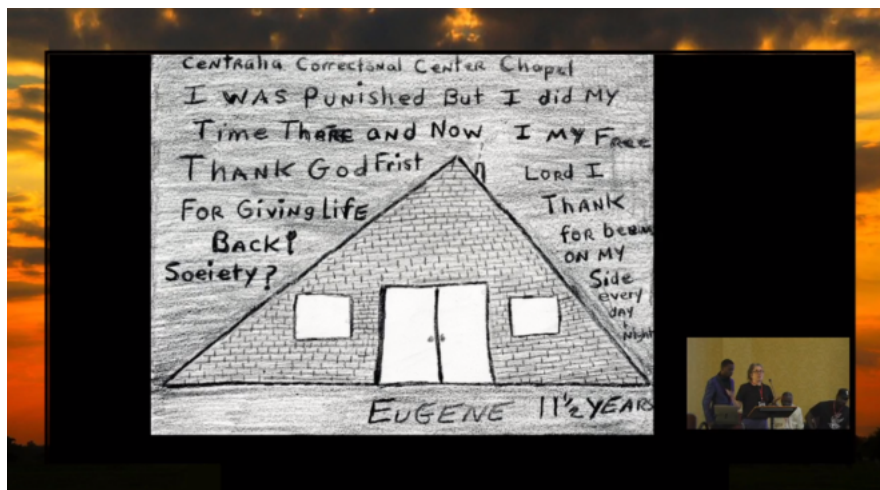 CENTRALIA CORRECTONAL CENTER CHAPEL
I WAS PUNISHED BUT I did MY
Time THERE AND NOW I MY FREE
THANK GOD FRIST
FOR GIVING LIFE
BACK!
Soeiety?
LORD I
THANK
for
ON MY
Side
every
DAY
&
Night
EUGENE 11½ YEARS